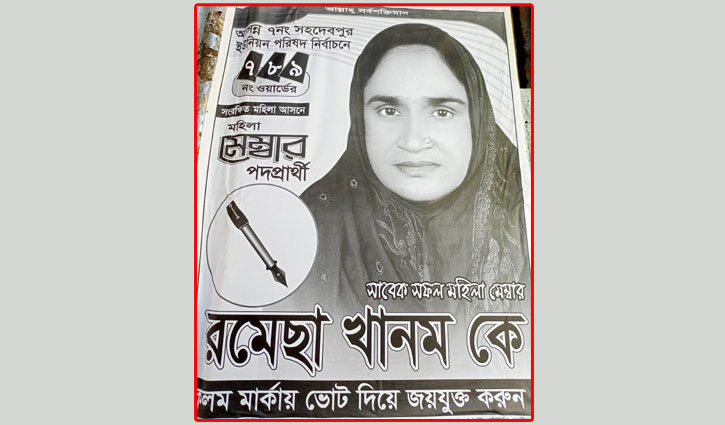 আল্লাহ্ সর্বশক্তিমান
আসন্ন ৭নং সহদেবপুর
ইউনিয়ন পরিষদ নির্বাচনে
৭ ৮ ৯
নং ওয়ার্ডের
সংরক্ষিত মহিলা আসনে
মহিলা
মেম্বার
পদপ্রার্থী
সাবেক সফল মহিলা মেম্বার
রমেছা খানম কে
কলম মার্কায় ভোট দিয়ে জয়যুক্ত করুন